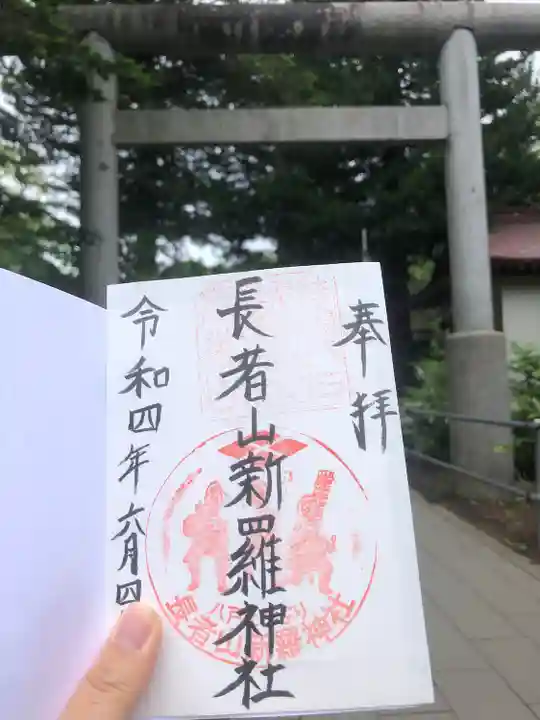 奉拝
長者山新羅神社
令和四年六月四
長者山新羅神社